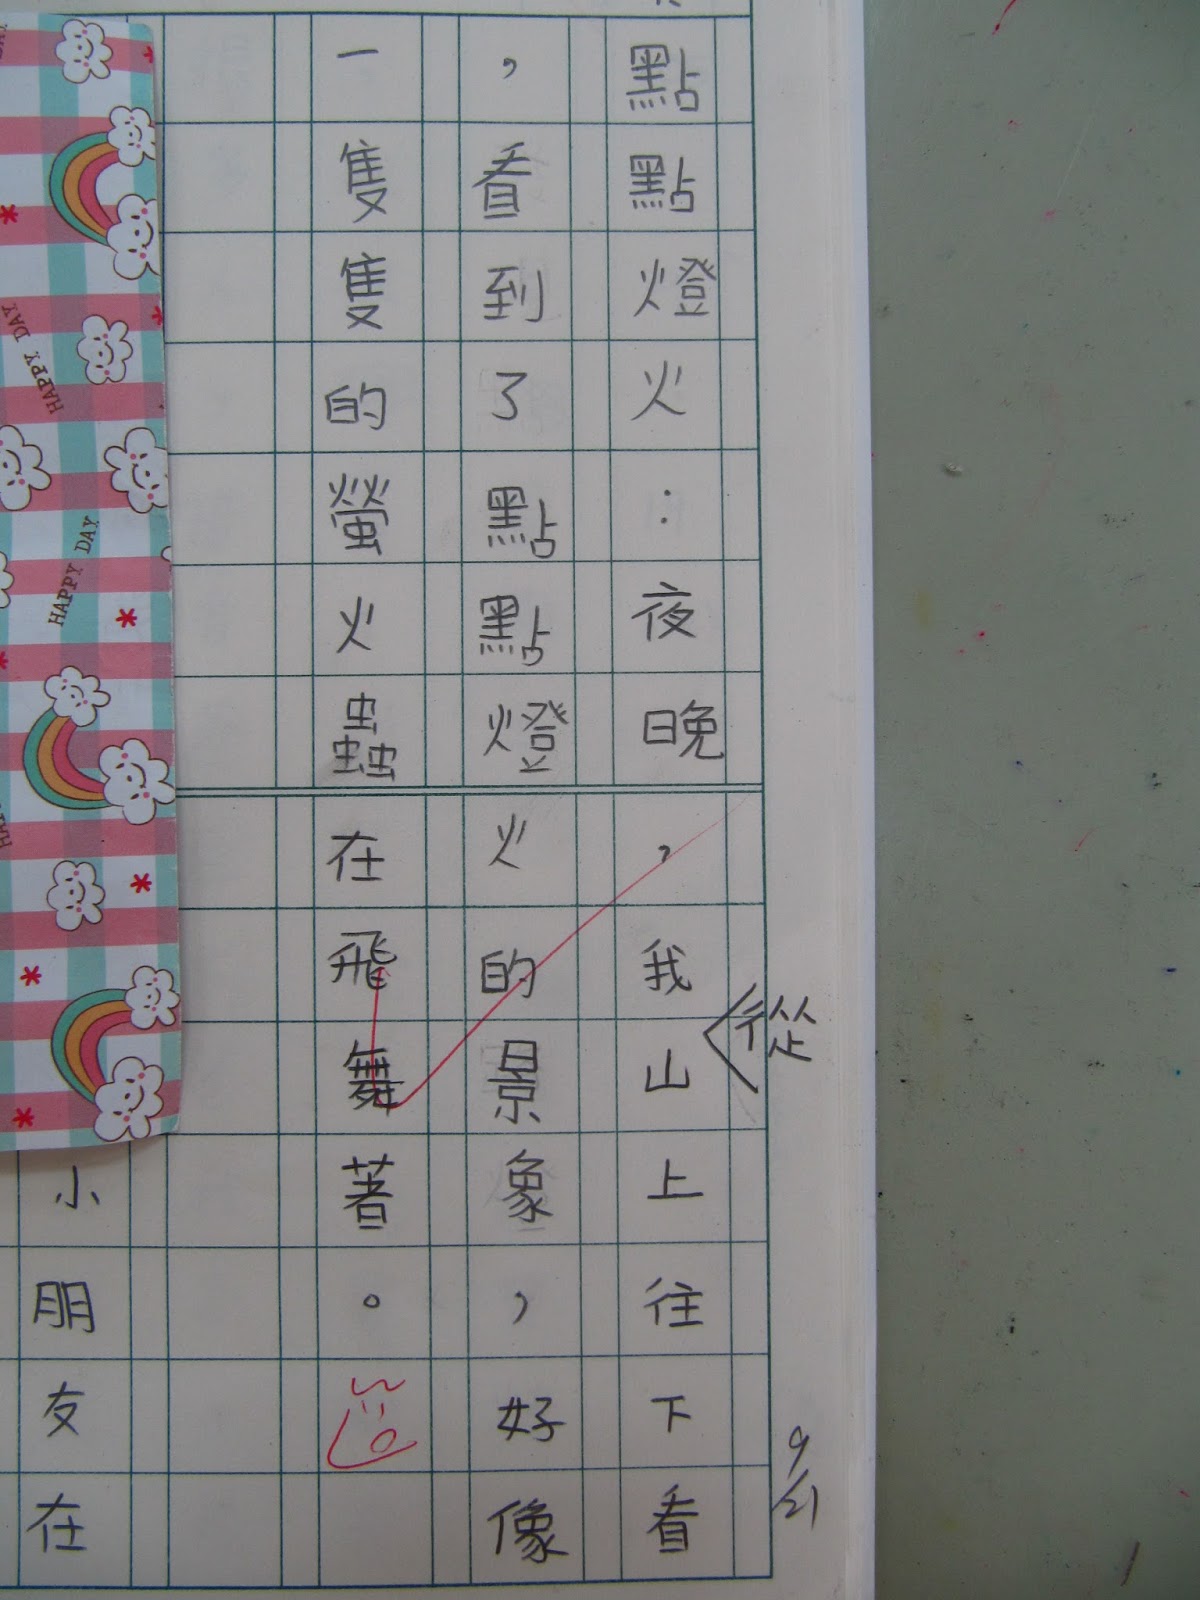 點點燈火：夜晚，我從山上往下看
，看到了點點燈火的景象，好像
一隻隻的螢火蟲在飛舞著。
小朋友在
9/21
HAPPY DAY
HAPPY DAY